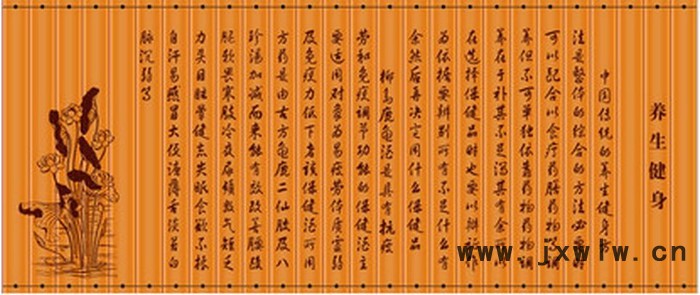 养生健身
中国传统的养生健身方
法是整体的综合的方法必要时
可以配合以食疗药膳药物等调
养但不可单独依靠药物药物调
养在于补其不足泻其有余所以
在选择保健品时也要以辩证作
为依据要辩别可有不足是什么有
余然后再决定用什么保健品
椰岛鹿龟酒是具有抗疲
劳和免疫调节功能的保健酒主
要适用对象为易疲劳体质虚弱
及免疫力低下者该保健酒可用
方药是由古方龟鹿二仙胶及八
珍汤加减而来能有效改善腰酸
腿软畏寒肢冷夜尿频数气短乏
力头目眩晕健忘失眠食欲不振
自汗易感冒大便溏薄舌淡苔白
脉沉弱等
www.jxwlw.cn